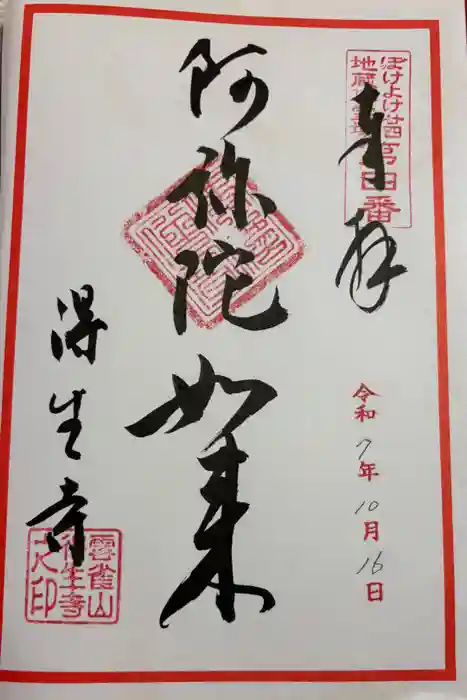 ぼけよけ廿四
地蔵
第四番
奉拝
令和7年10月16日
阿弥陀如来
得生寺
雲雀山
得生寺
之印